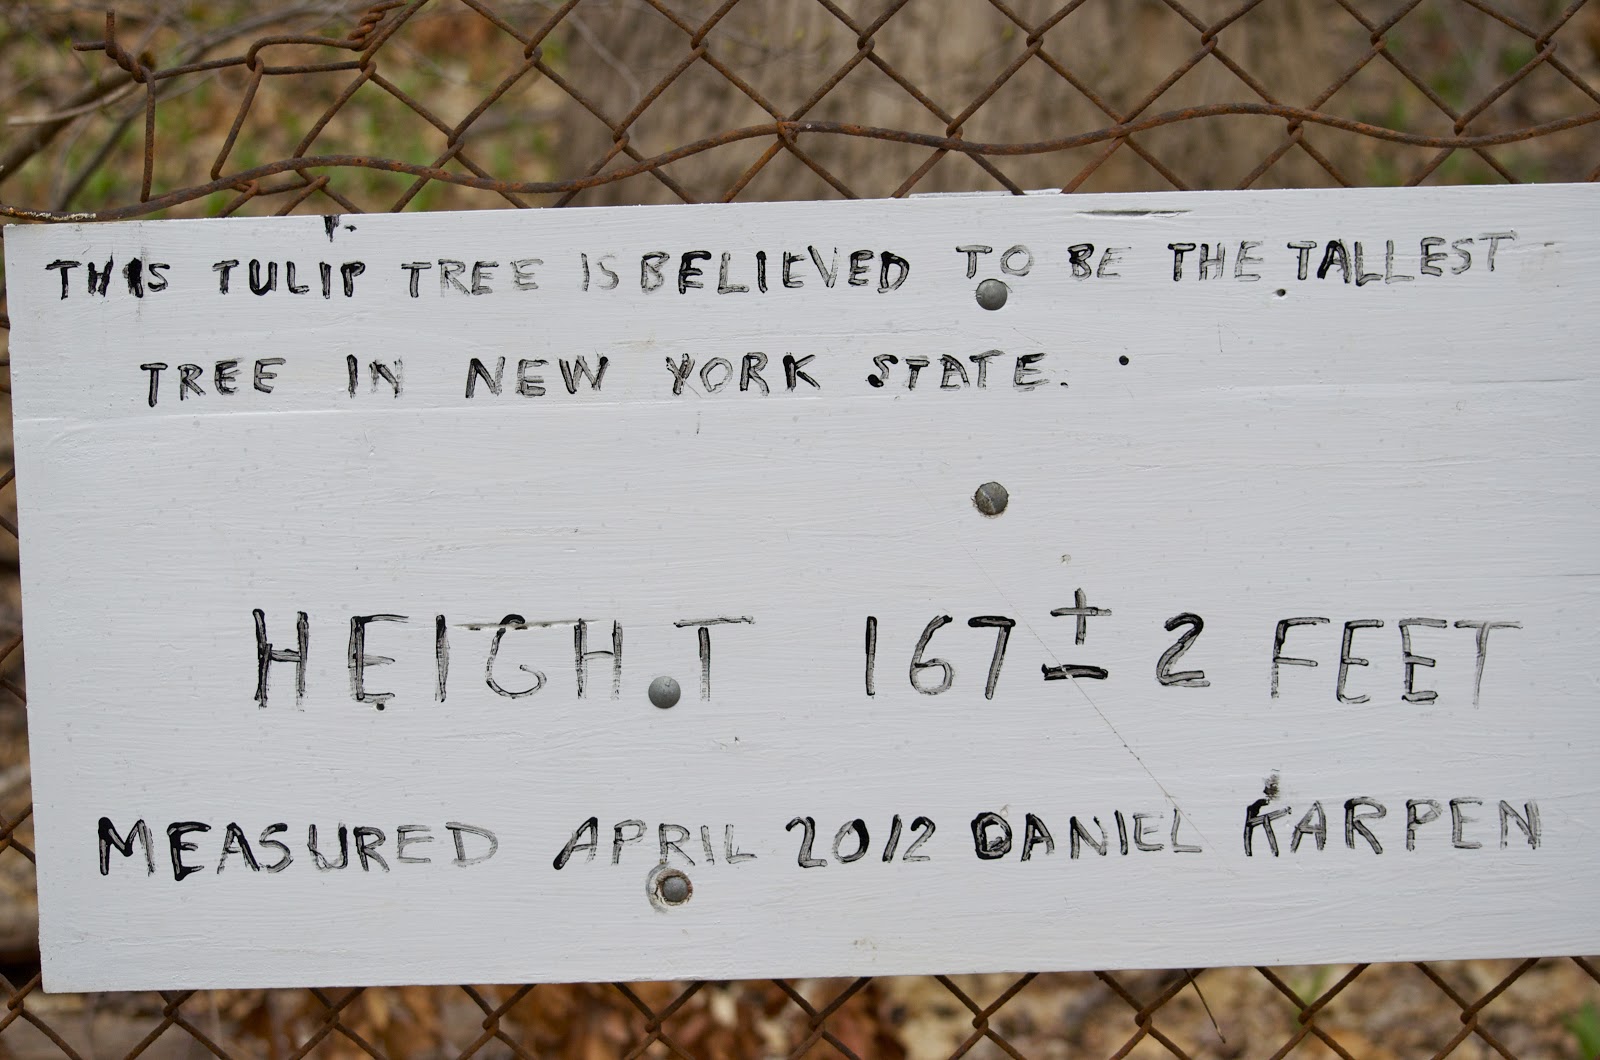 THIS TULIP TREE IS BELIEVED TO BE THE TALLEST
TREE IN NEW YORK STATE.
HEIGHT 167 ± 2 FEET
MEASURED APRIL 2012 DANIEL KARPEN